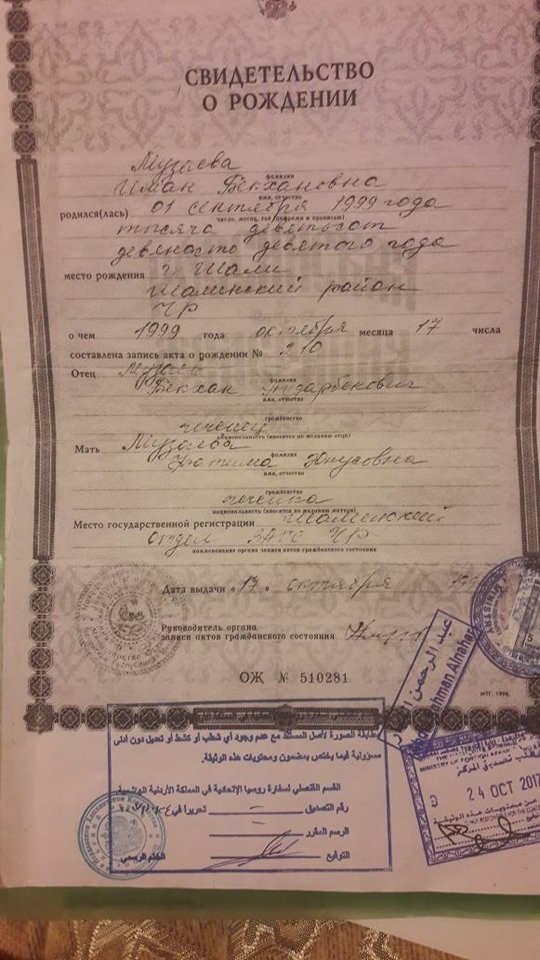 СВИДЕТЕЛЬСТВО
О РОЖДЕНИИ
Музаева
фамилия
Иман Бекхановна
имя, отчество
родился(лась) 01 сентября 1999 года
число, месяц, год (цифрами и прописью)
тысяча девятьсот
девяносто девятого года
место рождения г. Шали
Шалинский район
ЧР
о чем 1999 года октября месяца 17 числа
составлена запись акта о рождении № 210
Отец
фамилия
Бекхан
имя, отчество
гражданство
чеченец
национальность (вносится по желанию отца)
Мать Музаева
фамилия
Юнусовна
имя, отчество
гражданство
чеченка
национальность (вносится по желанию матери)
Место государственной регистрации Шалинский
отдел ЗАГС ЧР
наименование органа записи актов гражданского состояния
Дата выдачи « 17 » октября
Руководитель органа
записи актов гражданского состояния
ОЖ № 510281
МТГ. 1998.
عبد الرحمن
Rahman Alnahar
طابقة الصورة لأصل المستند مع عدم وجود أي شطب او كشط او تعديل دون ادنى
مسؤولية فيما يختص بمضمون ومحتويات هذه الوثيقة.
القسم القنصلي لسفارة روسيا الإتحادية في المملكة الأردنية الهاشمية
رقم التصديق تحريرا في
الرسم المقرر
التوقيع الختم الرسمي
MINISTRY OF FOREIGN
24 OCT 2017